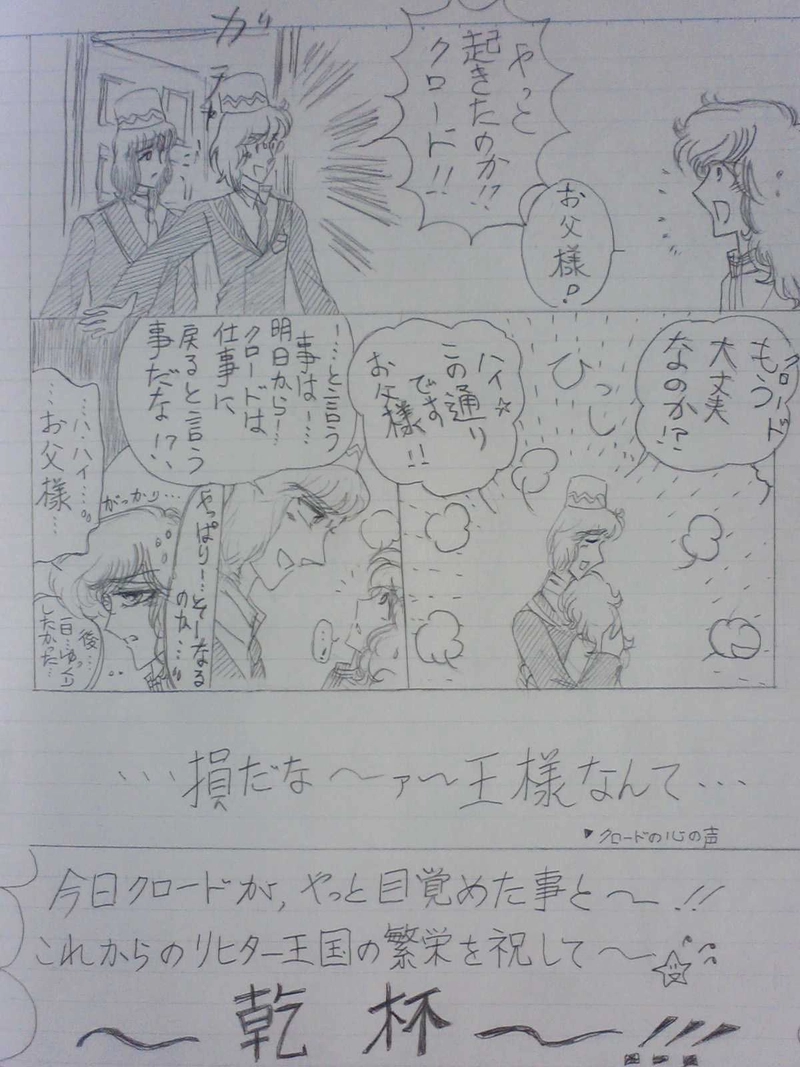 ガ
チャ
やっと
起きたのか!!
クロード!!
お父様!
クロード
もう
大丈夫
なのか!?
ひっし
ハイ☆
この通り
です
お父様!!
…と言う
事は…
明日から…
クロードは
仕事に
戻ると言う
事だな!?
…!
やっぱり…そーなる
のか…
がっかり…
…ハ・ハイ…
…お父様…
後…
一日…ゆっくり
したかった…
…損だな〜ァ〜王様なんて…
▶クロードの心の声
今日クロードが,やっと目覚めた事と〜!!
これからのリヒター王国の繁栄を祝して〜☆
〜乾杯〜!!!